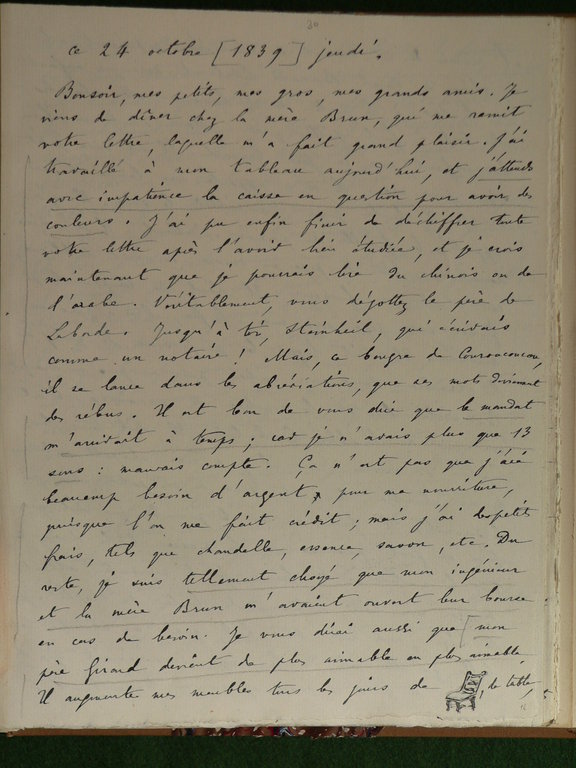 30
ce 24 octobre [1839] jeudi.
Bonsoir, mes petits, mes gros, mes grands amis. Je
viens de dîner chez la mère Brun, qui me remit
votre lettre, laquelle m'a fait grand plaisir. J'ai
travaillé à mon tableau aujourd'hui, et j'attends
avec impatience la caisse en question pour avoir des
couleurs. J'ai pu enfin finir de déchiffrer toute
votre lettre après l'avoir bien étudiée, et je crois
maintenant que je pourrais lire du chinois ou de
l'arabe. Véritablement, vous dégottez le père de
Laborde. Jusqu'à toi, Steinheil, qui écrivais
comme un notaire ! Mais, ce bougre de
il se lance dans les abréviations, que ses mots deviennent
des rébus. Il est bon de vous dire que le mandat
m'arrivait à temps ; car je n'avais plus que 13
sous : mauvais compte. Ça n'est pas que j'aie
beaucoup besoin d'argent, pour ma nourriture,
puisque l'on me fait crédit ; mais j'ai des petits
frais, tels que chandelle, essence, savon, etc. Du
reste, je suis tellement choyé que mon ingénieur
et la mère Brun m'avaient ouvert leur bourse
en cas de besoin. Je vous dirai aussi que [mon
père Girard devient de plus aimable en plus aimable.
Il augmente mes meubles tous les jours de , de table,